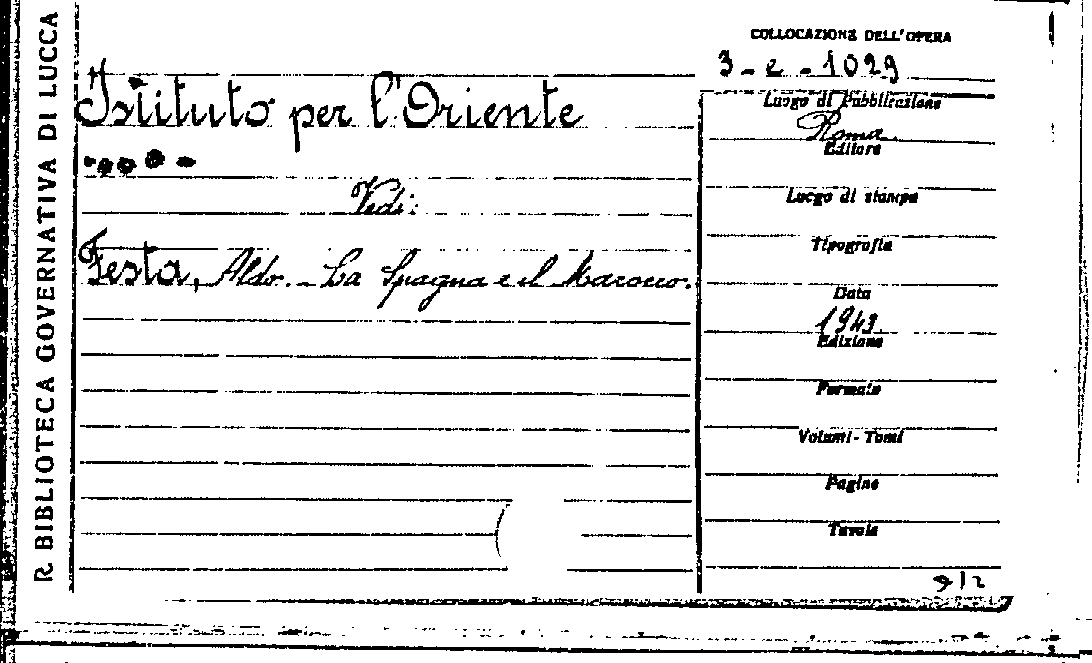 R. BIBLIOTECA GOVERNATIVA DI LUCCA
COLLOCAZIONE DELL'OPERA
3-e-1029
Istituto per l'Oriente
Vedi:
Festa, Aldo. - La Spagna e il Marocco.
Luogo di Pubblicazione
Roma
Editore
Luogo di stampa
Tipografia
Data
1943
Edizione
Formato
Volumi - Tomi
Pagine
Tavole